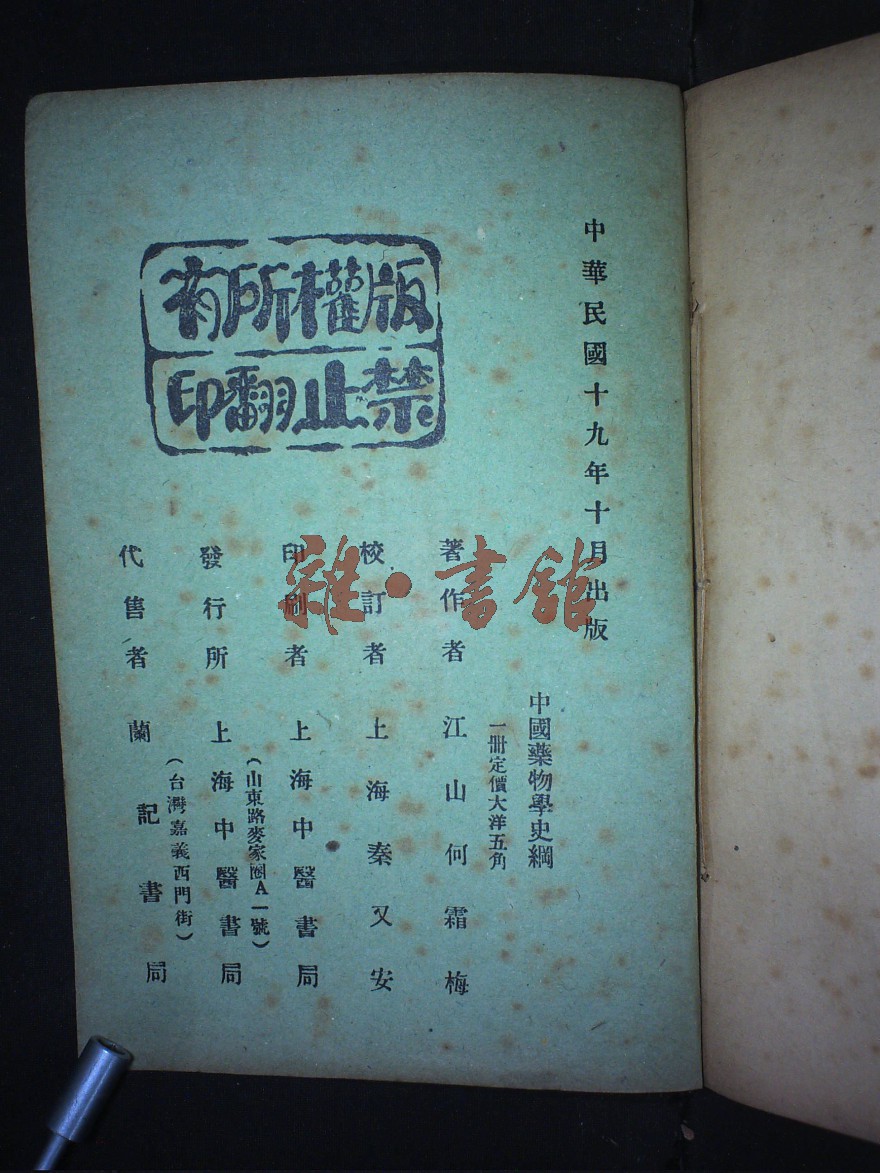 中華民國十九年十月出版
中國藥物學史綱
一冊定價大洋五角
版權所有
禁止翻印
著作者 江山何霜梅
校訂者 上海秦又安
印刷者 上海中醫書局
(山東路麥家圈A一號)
發行所 上海中醫書局
(台灣嘉義西門街)
代售者 蘭記書局
雜·書館